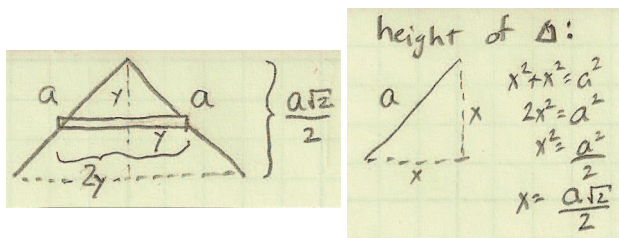 a
a
y
y
2y
a√2/2
height of Δ:
a
x
x
x²+x²=a²
2x²=a²
x²=a²/2
x=a√2/2